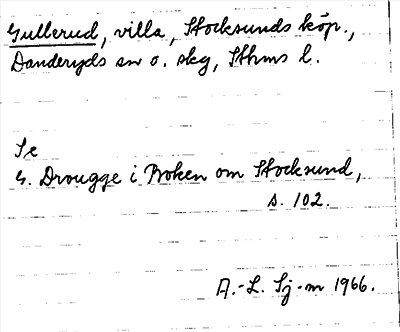 Gullerud, villa, Stocksunds köp.,
Danderyds sn o. skg, Sthms l.
Se
G. Drougge i Boken om Stocksund,
s. 102.
A.-L. Sj-m 1966.